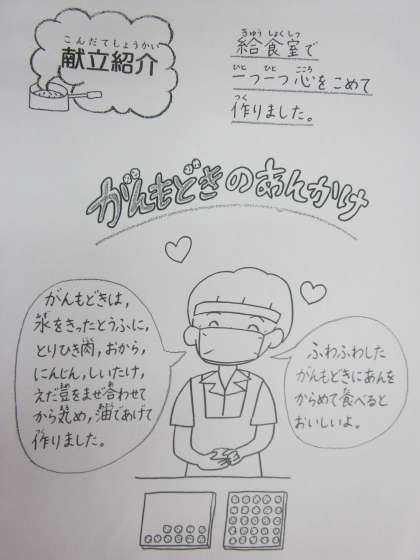 こんだてしょうかい
献立紹介
きゅうしょくしつ
給食室で
ひと ひと こころ
一つ一つ心をこめて
つく
作りました。
がんもどきのあんかけ
がんもどきは,
水をきったとうふに,
とりひき肉,おから,
にんじん,しいたけ,
えだ豆をまぜ合わせて
から丸め,油であげて
作りました。
ふわふわした
がんもどきにあんを
からめて食べると
おいしいよ。